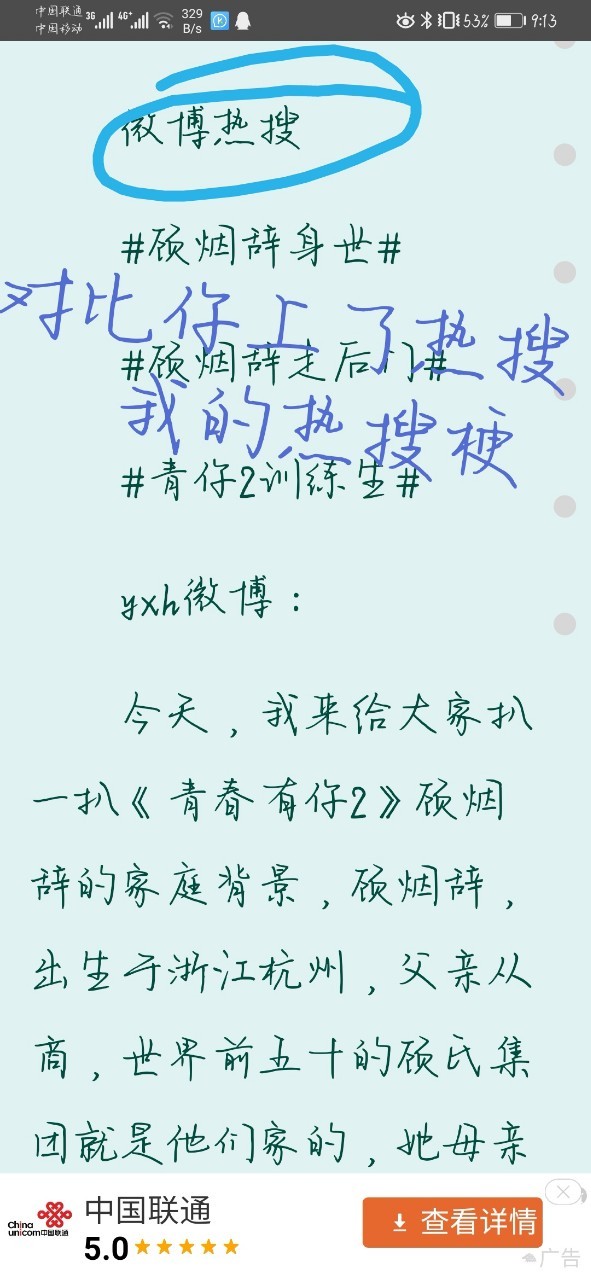 中国联通 3G 4G+ 329 53% 9:13
中国移动 B/s
微博热搜
#顾烟辞身世#
对比你上了热搜
#顾烟辞走后门#
我的热搜梗
#青你2训练生#
yxh微博：
今天，我来给大家扒
一扒《青春有你2》顾烟
辞的家庭背景，顾烟辞，
出生于浙江杭州，父亲从
商，世界前五十的顾氏集
团就是他们家的，她母亲
中国联通
China
unicom中国联通
5.0
查看详情
广告